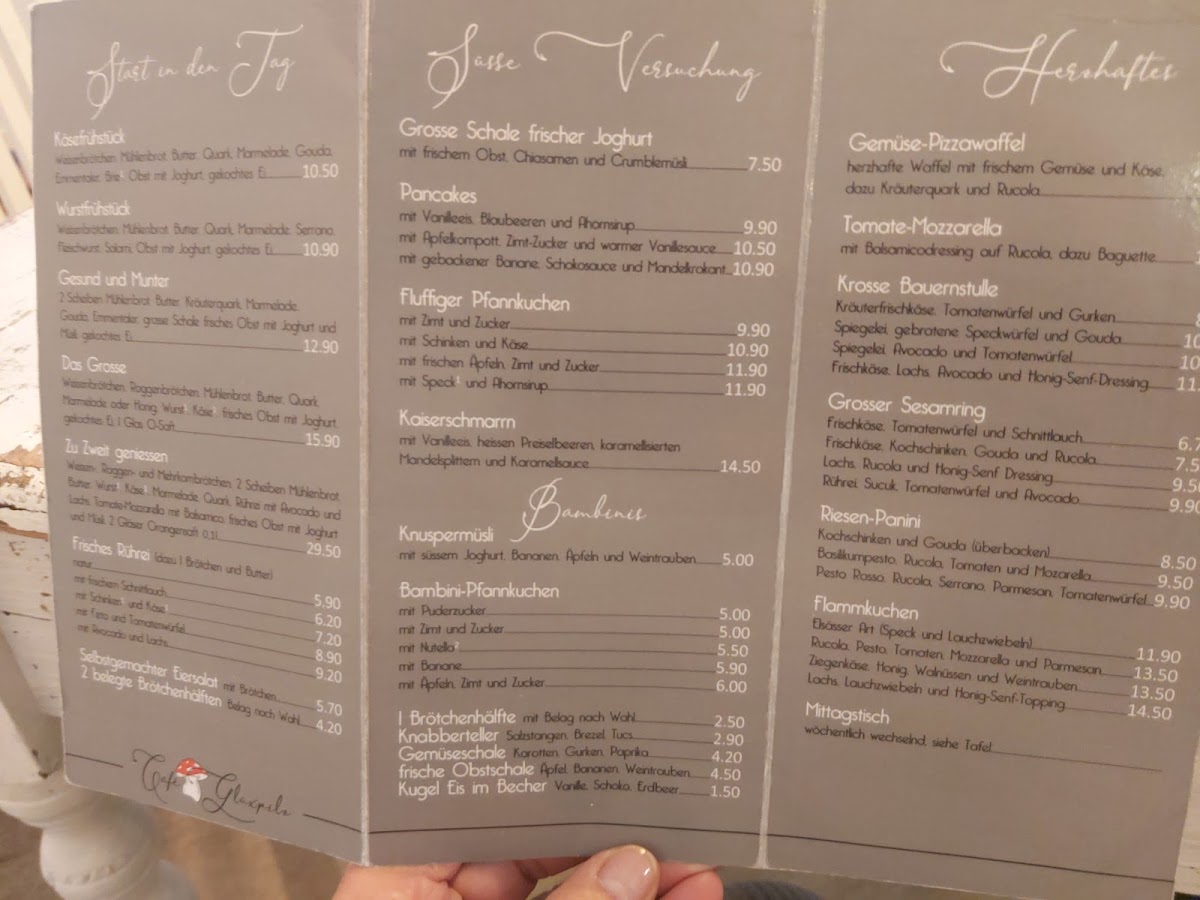 Start in den Tag
Käsefrühstück
Weizenbrötchen, Mühlenbrot, Butter, Quark, Marmelade, Gouda,
Emmentaler, Brie¹, Obst mit Joghurt, gekochtes Ei 10.50
Wurstfrühstück
Weizenbrötchen, Mühlenbrot, Butter, Quark, Marmelade, Serrano,
Fleischwurst, Salami, Obst mit Joghurt, gekochtes Ei 10.90
Gesund und Munter
2 Scheiben Mühlenbrot, Butter, Kräuterquark, Marmelade,
Gouda, Emmentaler, grosse Schale frisches Obst mit Joghurt und
Müsli, gekochtes Ei 12.90
Das Grosse
Weizenbrötchen, Roggenbrötchen, Mühlenbrot, Butter, Quark,
Marmelade oder Honig, Wurst, Käse, frisches Obst mit Joghurt,
gekochtes Ei, 1 Glas O-Saft 15.90
Zu Zweit geniessen
Weizen-, Roggen- und Mehrkornbrötchen, 2 Scheiben Mühlenbrot,
Butter, Wurst, Käse, Marmelade, Quark, Rührei mit Avocado und
Lachs, Tomate-Mozzarella mit Balsamico, frisches Obst mit Joghurt
und Müsli, 2 Gläser Orangensaft 0,1l 29.50
Frisches Rührei (dazu 1 Brötchen und Butter)
natur 5.90
mit frischem Schnittlauch 6.20
mit Schinken und Käse 7.20
mit Feta und Tomatenwürfel 8.90
mit Avocado und Lachs 9.20
Selbstgemachter Eiersalat mit Brötchen 5.70
2 belegte Brötchenhälften Belag nach Wahl 4.20
Cafe Glixpilz
Süsse Versuchung
Grosse Schale frischer Joghurt
mit frischem Obst, Chiasamen und Crumblemüsli 7.50
Pancakes
mit Vanilleeis, Blaubeeren und Ahornsirup 9.90
mit Apfelkompott, Zimt-Zucker und warmer Vanillesauce 10.50
mit gebackener Banane, Schokosauce und Mandelkrokant 10.90
Fluffiger Pfannkuchen
mit Zimt und Zucker 9.90
mit Schinken und Käse 10.90
mit frischen Äpfeln, Zimt und Zucker 11.90
mit Speck² und Ahornsirup 11.90
Kaiserschmarrn
mit Vanilleeis, heissen Preiselbeeren, karamellisierten
Mandelsplittern und Karamellsauce 14.50
Bambinis
Knuspermüsli
mit süssem Joghurt, Bananen, Äpfeln und Weintrauben 5.00
Bambini-Pfannkuchen
mit Puderzucker 5.00
mit Zimt und Zucker 5.00
mit Nutella² 5.50
mit Banane 5.90
mit Äpfeln, Zimt und Zucker 6.00
1 Brötchenhälfte mit Belag nach Wahl 2.50
Knabberteller Salzstangen, Brezel, Tucs 2.90
Gemüseschale Karotten, Gurken, Paprika 4.20
frische Obstschale Apfel, Bananen, Weintrauben 4.50
Kugel Eis im Becher Vanille, Schoko, Erdbeer 1.50
Herzhaftes
Gemüse-Pizzawaffel
herzhafte Waffel mit frischem Gemüse und Käse,
dazu Kräuterquark und Rucola
Tomate-Mozzarella
mit Balsamicodressing auf Rucola, dazu Baguette
Krosse Bauernstulle
Kräuterfrischkäse, Tomatenwürfel und Gurken
Spiegelei, gebratene Speckwürfel und Gouda 10
Spiegelei, Avocado und Tomatenwürfel 10
Frischkäse, Lachs, Avocado und Honig-Senf-Dressing 11.
Grosser Sesamring
Frischkäse, Tomatenwürfel und Schnittlauch 6.7
Frischkäse, Kochschinken, Gouda und Rucola 7.5
Lachs, Rucola und Honig-Senf Dressing 9.50
Rührei, Sucuk, Tomatenwürfel und Avocado 9.90
Riesen-Panini
Kochschinken und Gouda (überbacken) 8.50
Basilikumpesto, Rucola, Tomaten und Mozarella 9.50
Pesto Rosso, Rucola, Serrano, Parmesan, Tomatenwürfel 9.90
Flammkuchen
Elsässer Art (Speck und Lauchzwiebeln) 11.90
Rucola, Pesto, Tomaten, Mozzarella und Parmesan 13.50
Ziegenkäse, Honig, Walnüssen und Weintrauben 13.50
Lachs, Lauchzwiebeln und Honig-Senf-Topping 14.50
Mittagstisch
wöchentlich wechselnd, siehe Tafel